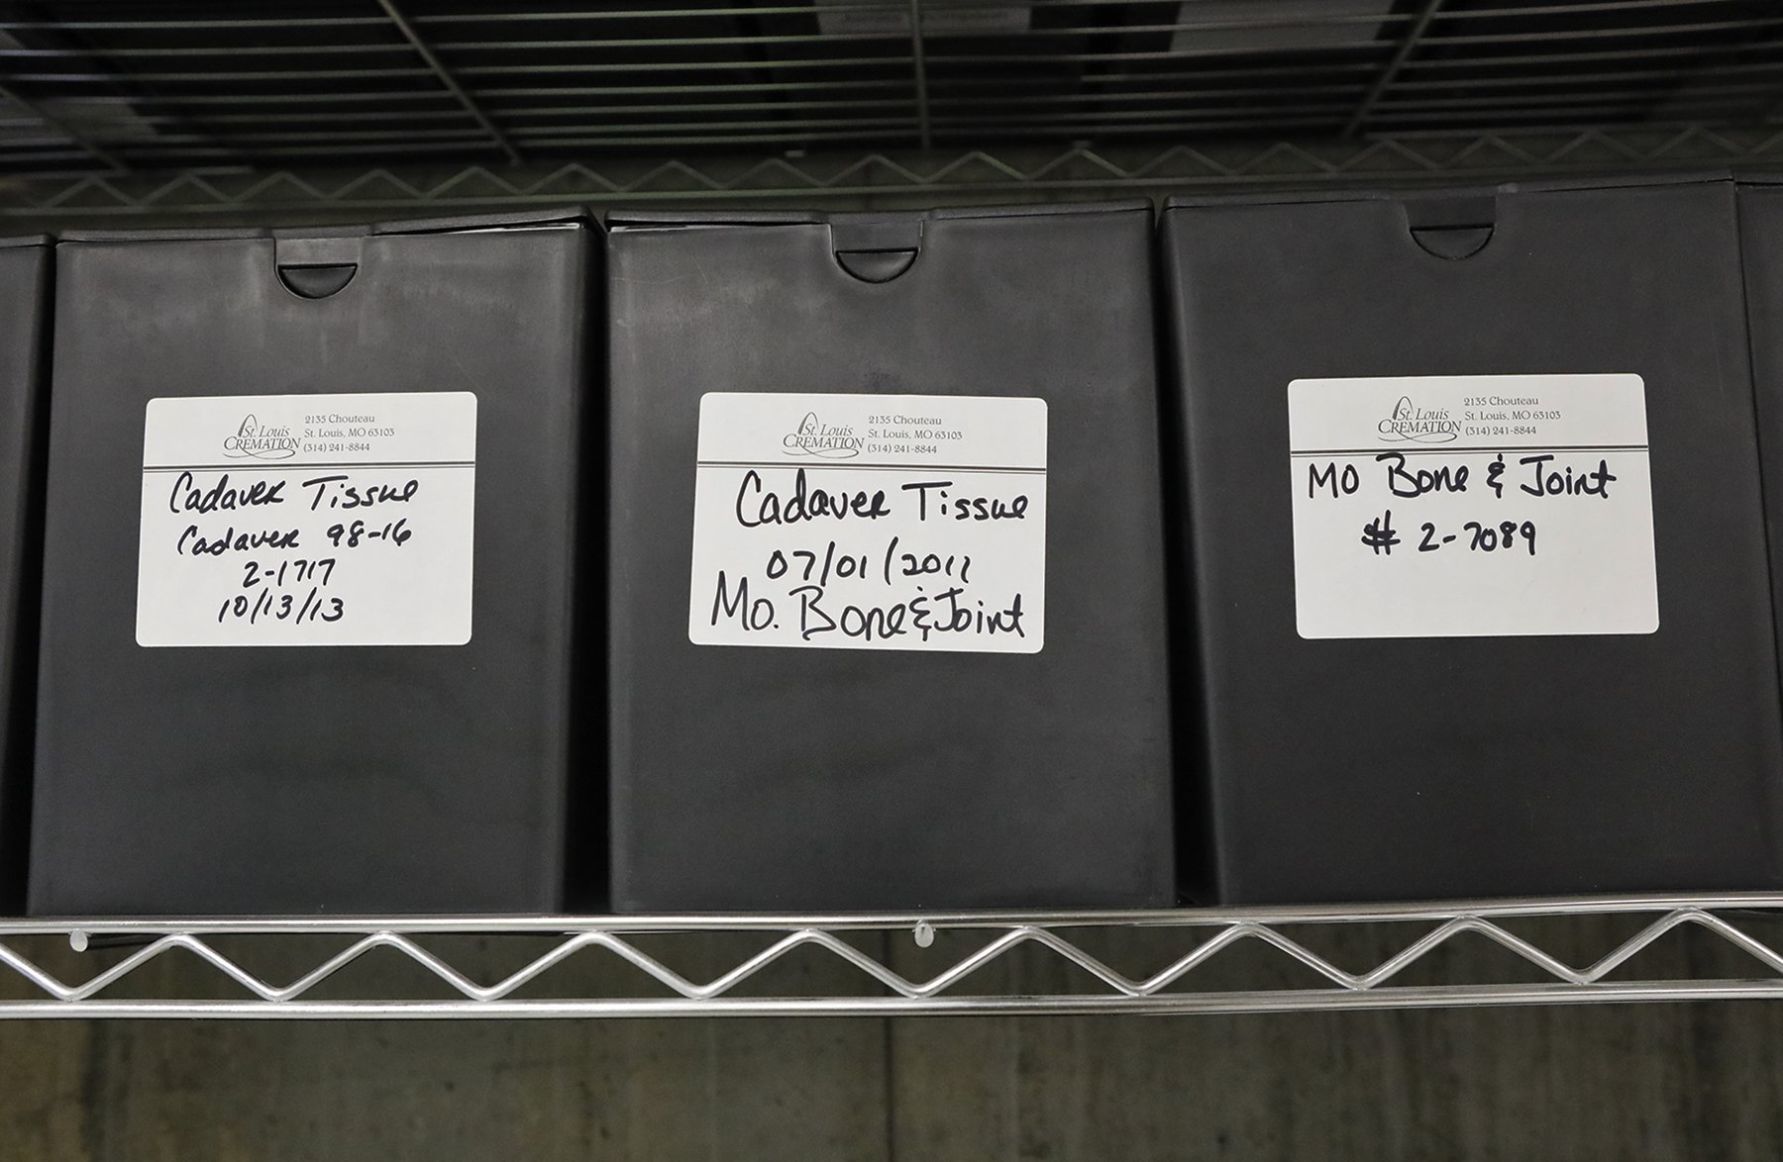 St. Louis
CREMATION
2135 Chouteau
St. Louis, MO 63103
(314) 241-8844
Cadaver Tissue
Cadaver 98-16
2-1717
10/13/13
St. Louis
CREMATION
2135 Chouteau
St. Louis, MO 63103
(314) 241-8844
Cadaver Tissue
07/01/2011
Mo. Bone & Joint
St. Louis
CREMATION
2135 Chouteau
St. Louis, MO 63103
(314) 241-8844
MO Bone & Joint
# 2-7089